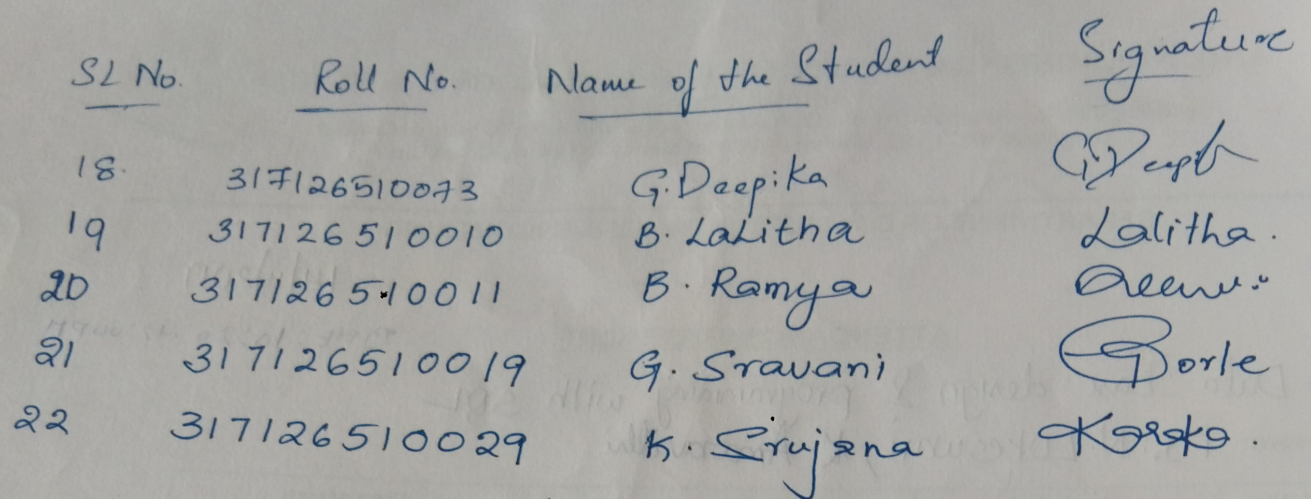 SL No. Roll No. Name of the Student Signature
18. 317126510073 G. Deepika
19 317126510010 B. Lalitha Lalitha.
20 317126510011 B. Ramya
21 317126510019 G. Sravani Gorle
22 317126510029 K. Srujana